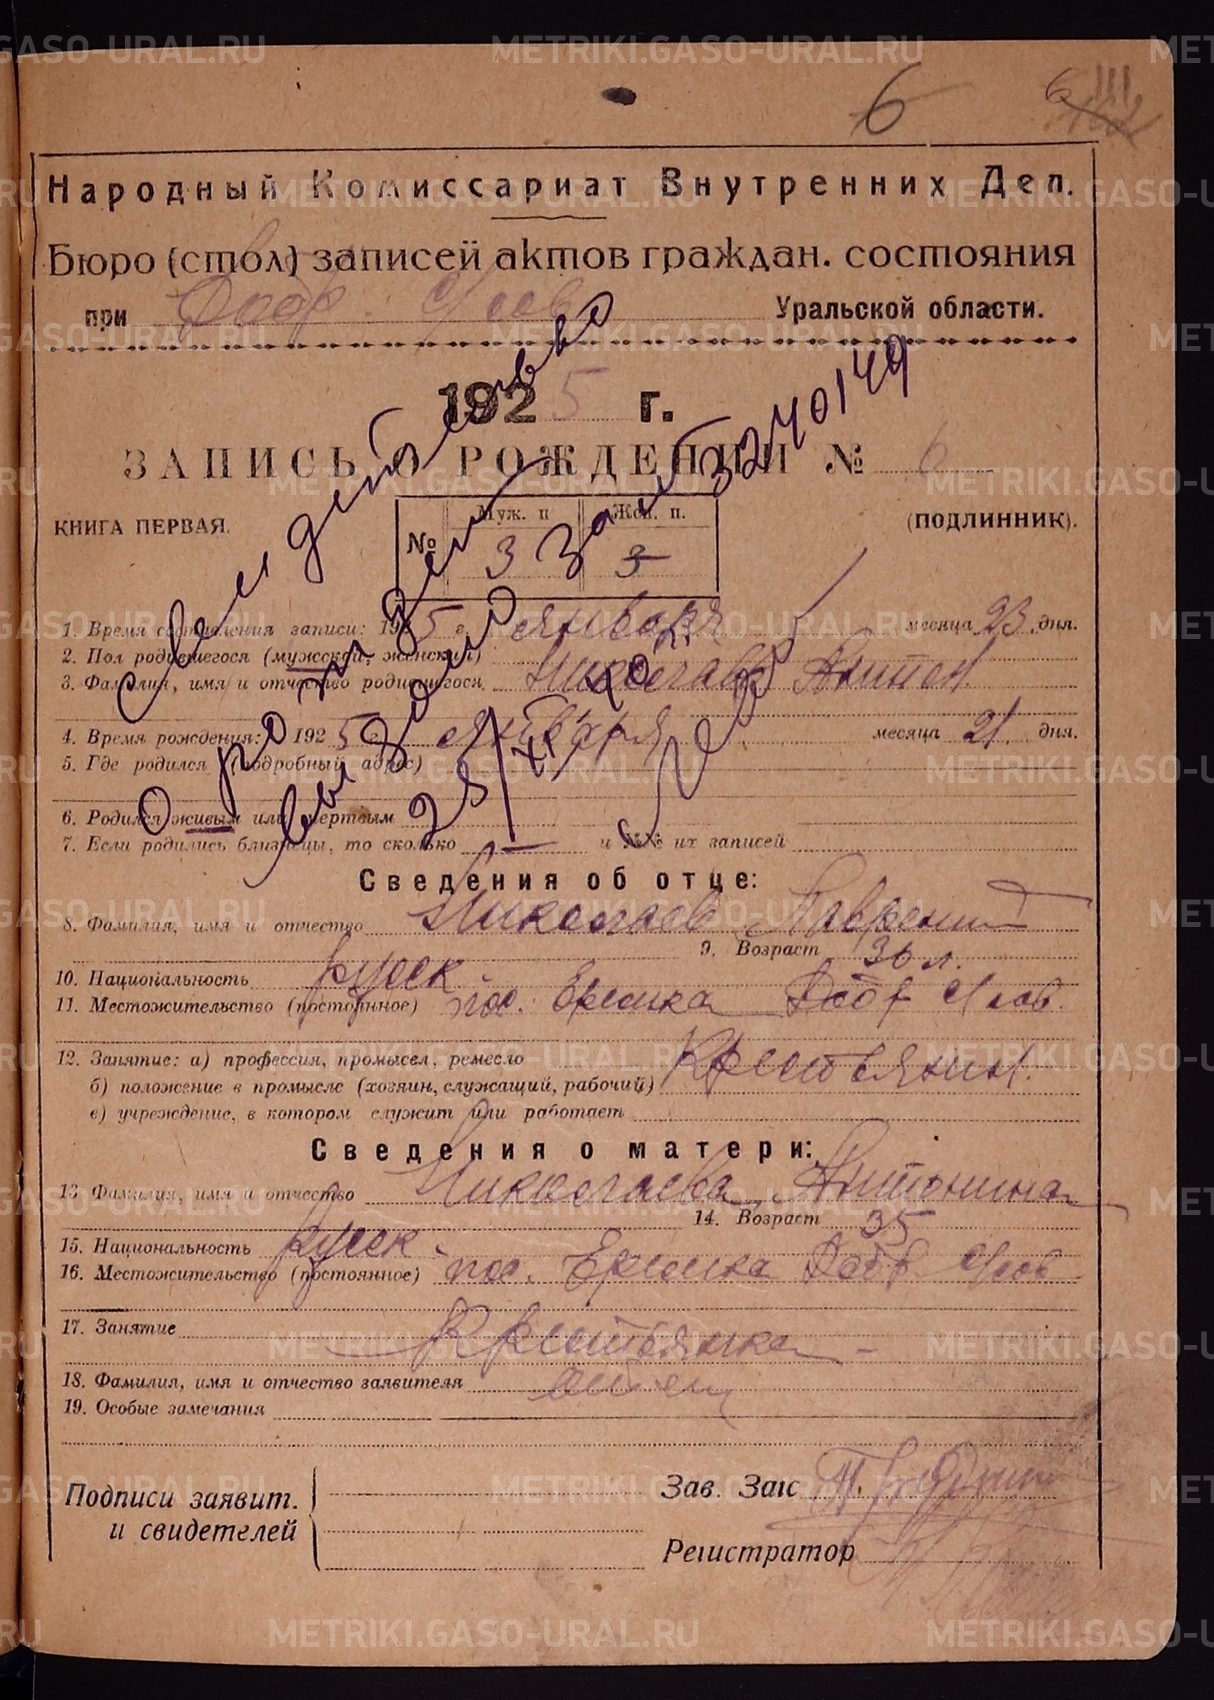 6
6
Народный Комиссариат Внутренних Дел.
Бюро (стол) записей актов граждан. состояния
при Добр. Уральской области.
1925 г.
ЗАПИСЬ О РОЖДЕНИИ № 6
КНИГА ПЕРВАЯ. (ПОДЛИННИК).
Муж. п Жен. п.
№ 3 3
Свидетельство
о рождении
выдано
25/XI
3270149
1. Время составления записи: 1925 г. Января месяца 23 дня.
2. Пол родившегося (мужской, женский)
3. Фамилия, имя и отчество родившегося Николаев
4. Время рождения: 1925 Января месяца 21. дня.
5. Где родился (подробный адрес)
6. Родился живым или мертвым
7. Если родились близнецы, то сколько — и №№ их записей
Сведения об отце:
8. Фамилия, имя и отчество Николаев Лаврентий
9. Возраст 36 л.
10. Национальность русск.
11. Местожительство (постоянное) пос. Добр
12. Занятие: а) профессия, промысел, ремесло Крестьянин.
б) положение в промысле (хозяин, служащий, рабочий)
в) учреждение, в котором служит или работает
Сведения о матери:
13 Фамилия, имя и отчество Николаева Антонина
14. Возраст 35
15. Национальность Русск.
16. Местожительство (постоянное) пос. Добр
17. Занятие Крестьянка
18. Фамилия, имя и отчество заявителя отец
19. Особые замечания
Подписи заявит. Зав. Загс
и свидетелей
Регистратор
METRIKI.GASO-URAL.RU